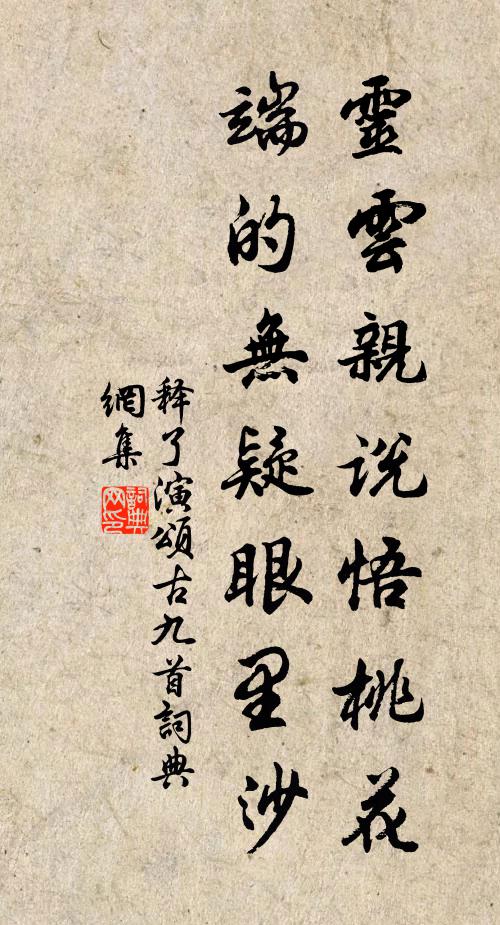 靈雲親说悟桃花
端的無疑眼里沙
释了演頌古九首詞典
網集
詞典
网印